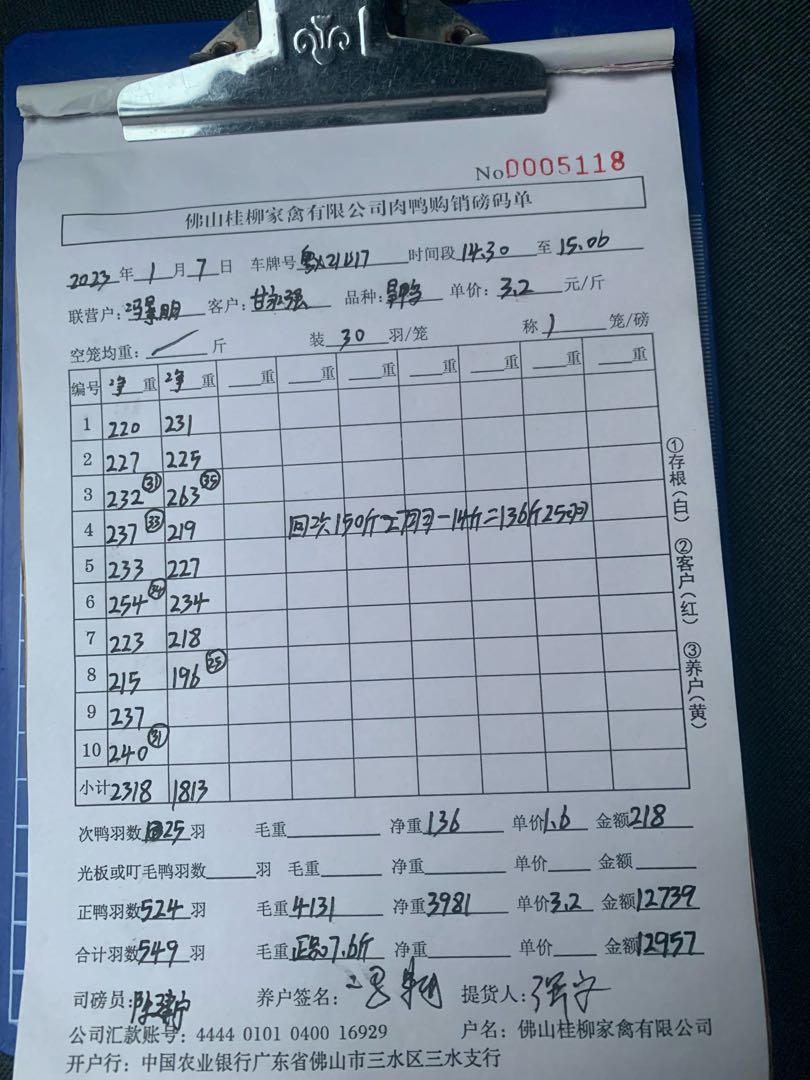 No 0005118
佛山桂柳家禽有限公司肉鸭购销磅码单
2023 年 1 月 7 日 车牌号 时间段 14.30 至 15.06
联营户: 冯景明 客户: 甘永强 品种: 单价: 3.2 元/斤
空笼均重: 斤 装 30 羽/笼 称 1 笼/磅
编号 净重 净重 重 重 重 重 重 重 重
1 220 231
2 227 225
3 232 31 263 35
4 237 33 219 回次150斤 -14斤=136斤25羽
5 233 227
6 254 34 234
7 223 218
8 215 196 25
9 237
10 240 31
小计 2318 1813
①存根(白) ②客户(红) ③养户(黄)
次鸭羽数 25 羽 毛重 净重 136 单价 1.6 金额 218
光板或叮毛鸭羽数 羽 毛重 净重 单价 金额
正鸭羽数 524 羽 毛重 4131 净重 3981 单价 3.2 金额 12739
合计羽数 549 羽 毛重 正品7.6斤 净重 单价 金额 12957
司磅员: 养户签名: 提货人:
公司汇款账号: 4444 0101 0400 16929 户名: 佛山桂柳家禽有限公司
开户行: 中国农业银行广东省佛山市三水区三水支行